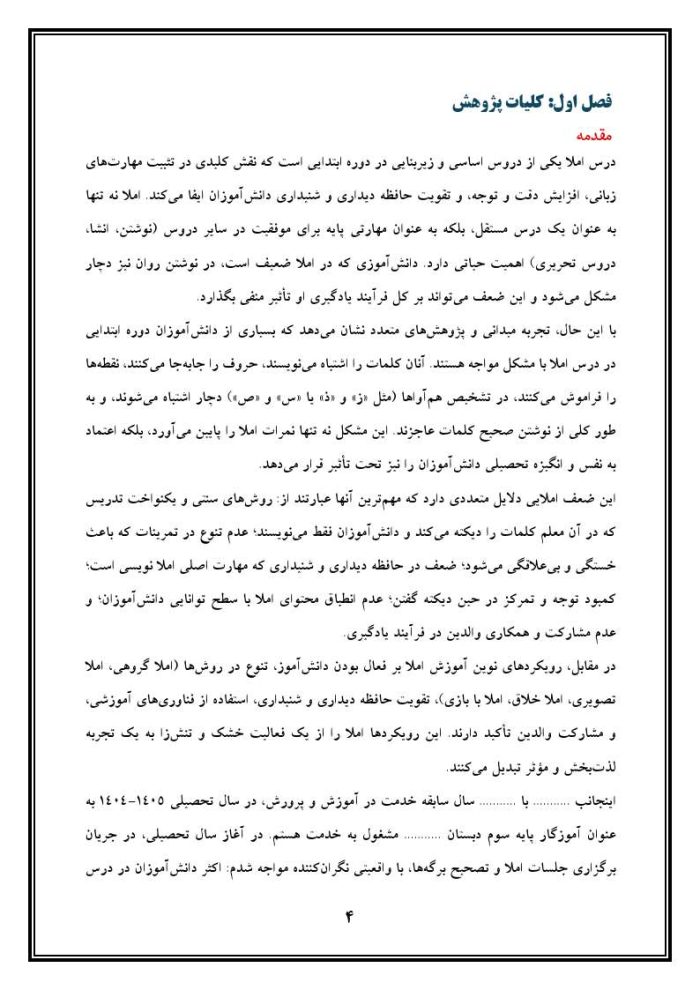 فصل اول: کلیات پژوهش
مقدمه
درس املا یکی از دروس اساسی و زیربنایی در دوره ابتدایی است که نقش کلیدی در تثبیت مهارت‌های
زبانی، افزایش دقت و توجه، و تقویت حافظه دیداری و شنیداری دانش‌آموزان ایفا می‌کند. املا نه تنها
به عنوان یک درس مستقل، بلکه به عنوان مهارتی پایه برای موفقیت در سایر دروس (نوشتن، انشا،
دروس تحریری) اهمیت حیاتی دارد. دانش‌آموزی که در املا ضعیف است، در نوشتن روان نیز دچار
مشکل می‌شود و این ضعف می‌تواند بر کل فرآیند یادگیری او تأثیر منفی بگذارد.
با این حال، تجربه میدانی و پژوهش‌های متعدد نشان می‌دهد که بسیاری از دانش‌آموزان دوره ابتدایی
در درس املا با مشکل مواجه هستند. آنان کلمات را اشتباه می‌نویسند، حروف را جابه‌جا می‌کنند، نقطه‌ها
را فراموش می‌کنند، در تشخیص هم‌آواها (مثل «ز» و «ذ» یا «س» و «ص») دچار اشتباه می‌شوند، و به
طور کلی از نوشتن صحیح کلمات عاجزند. این مشکل نه تنها نمرات املا را پایین می‌آورد، بلکه اعتماد
به نفس و انگیزه تحصیلی دانش‌آموزان را نیز تحت تأثیر قرار می‌دهد.
این ضعف املایی دلایل متعددی دارد که مهم‌ترین آنها عبارتند از: روش‌های سنتی و یکنواخت تدریس
که در آن معلم کلمات را دیکته می‌کند و دانش‌آموزان فقط می‌نویسند؛ عدم تنوع در تمرینات که باعث
خستگی و بی‌علاقگی می‌شود؛ ضعف در حافظه دیداری و شنیداری که مهارت اصلی املا نویسی است؛
کمبود توجه و تمرکز در حین دیکته گفتن؛ عدم انطباق محتوای املا با سطح توانایی دانش‌آموزان؛ و
عدم مشارکت و همکاری والدین در فرآیند یادگیری.
در مقابل، رویکردهای نوین آموزش املا بر فعال بودن دانش‌آموز، تنوع در روش‌ها (املا گروهی، املا
تصویری، املا خلاق، املا با بازی)، تقویت حافظه دیداری و شنیداری، استفاده از فناوری‌های آموزشی،
و مشارکت والدین تأکید دارند. این رویکردها املا را از یک فعالیت خشک و تنش‌زا به یک تجربه
لذت‌بخش و مؤثر تبدیل می‌کنند.
اینجانب ........... با ........... سال سابقه خدمت در آموزش و پرورش، در سال تحصیلی ۱۴۰۵-۱۴۰۴ به
عنوان آموزگار پایه سوم دبستان ........... مشغول به خدمت هستم. در آغاز سال تحصیلی، در جریان
برگزاری جلسات املا و تصحیح برگه‌ها، با واقعیتی نگران‌کننده مواجه شدم: اکثر دانش‌آموزان در درس
۴